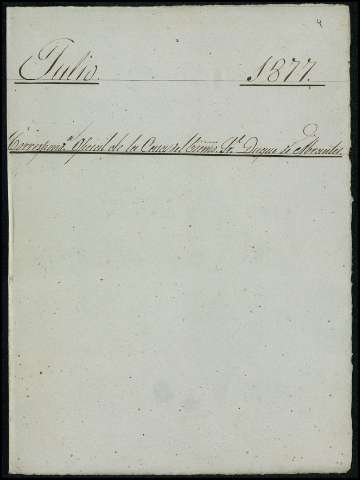 4
Julio. 1877.
Correspond.ª Oficial de la Casa del Excmo. Sr. Duque de Abrantes